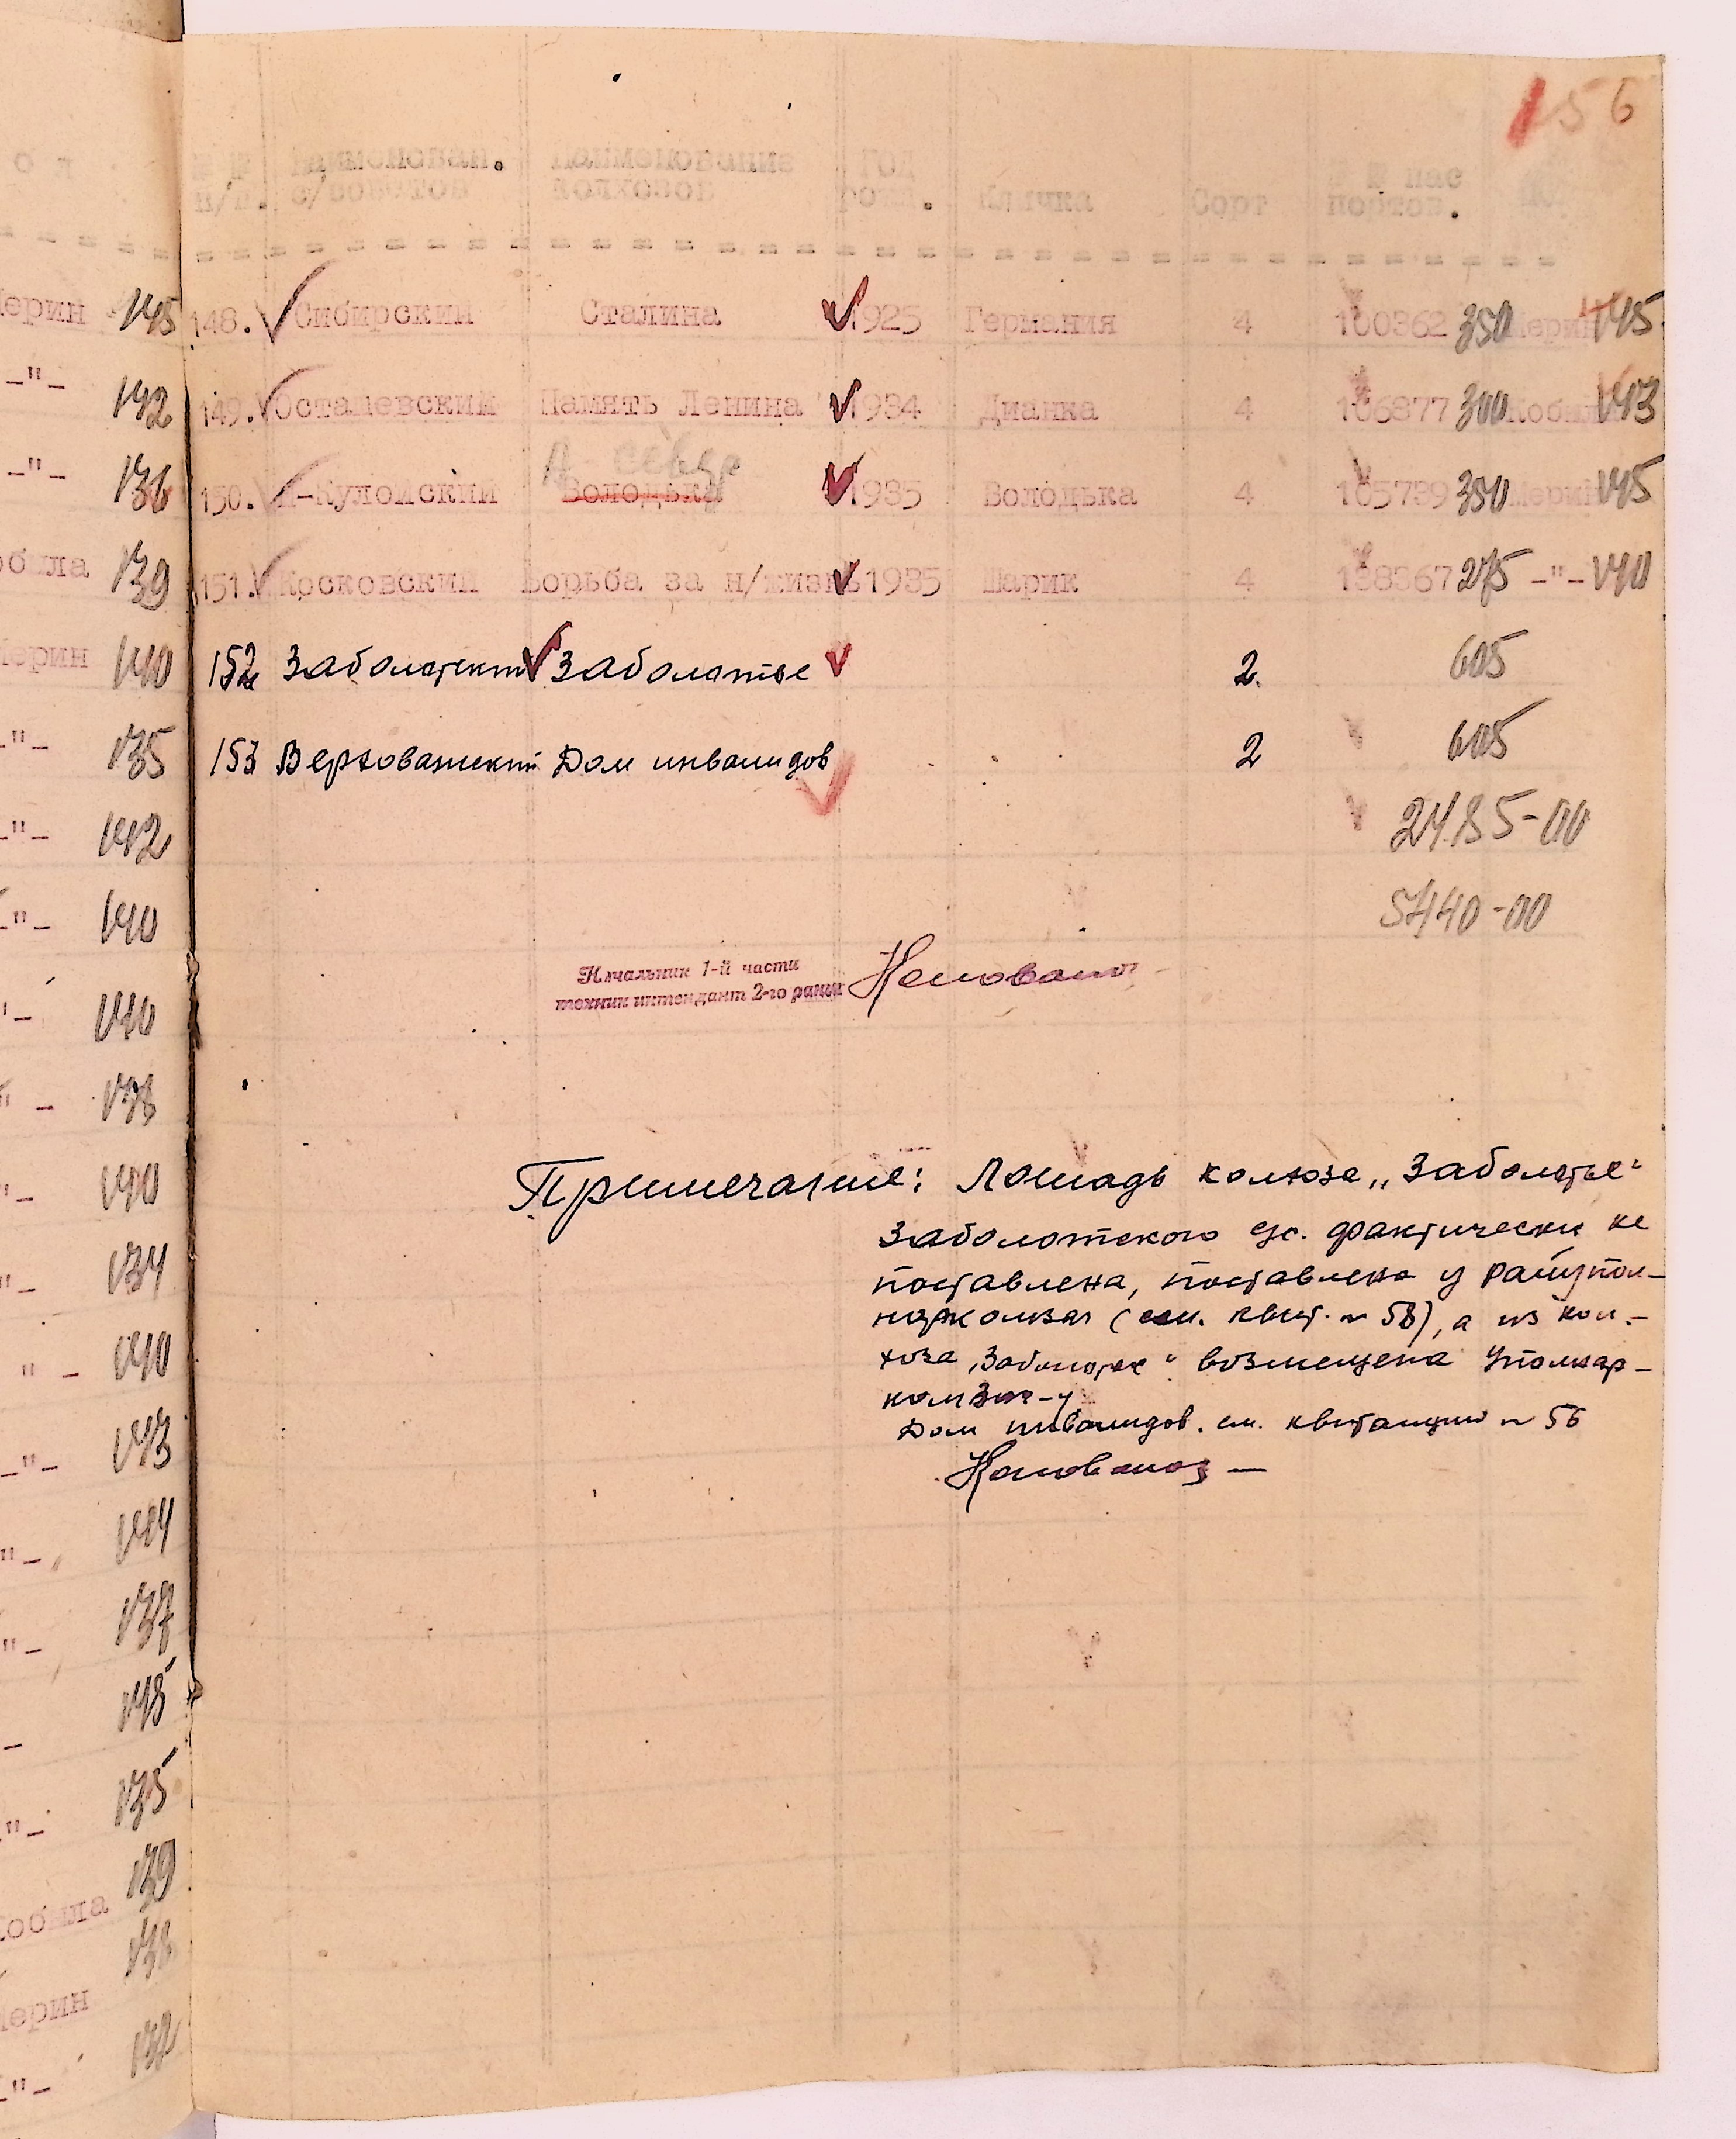 156
№ № Наименован. Наименование Год № № пас
п/п. с/советов колхозов рожд. Кличка Сорт портов. Пол
148. Сибирский Сталина 1925 Германия 4 100362 350 Мерин 145
149. Осташевский Память Ленина 1934 Дианка 4 106877 300 Кобыла 143
Д- север
150. -Кулойский Володька 1935 Володька 4 105739 350 Мерин 145
151. Косковский Борьба за н/жизнь 1935 Шарик 4 138367 275 -"- 140
152 Заболотский Заболотье 2. 605
153 Верховажский Дом инвалидов 2 605
2485-00
5440-00
Начальник 1-й части
техник интендант 2-го ранга
Примечание: Лошадь колхоза „Заболотье"
Заболотского с/с. фактически не
поставлена, поставлена у райупол-
наркомзаг (см. квит. № 58), а из кол-
хоза „Заболотье" возмещена Уполнар-
комзаг-у
Дом инвалидов. см. квитанцию № 56
ерин 145
-"- 142
-"- 136
обыла 139
ерин 140
-"- 135
-"- 142
-"- 140
"- 140
" - 138
"- 140
"- 134
" - 140
-"- 143
"- 144
"- 137
- 145
"- 135
139
Кобыла 138
Мерин
-"- 132